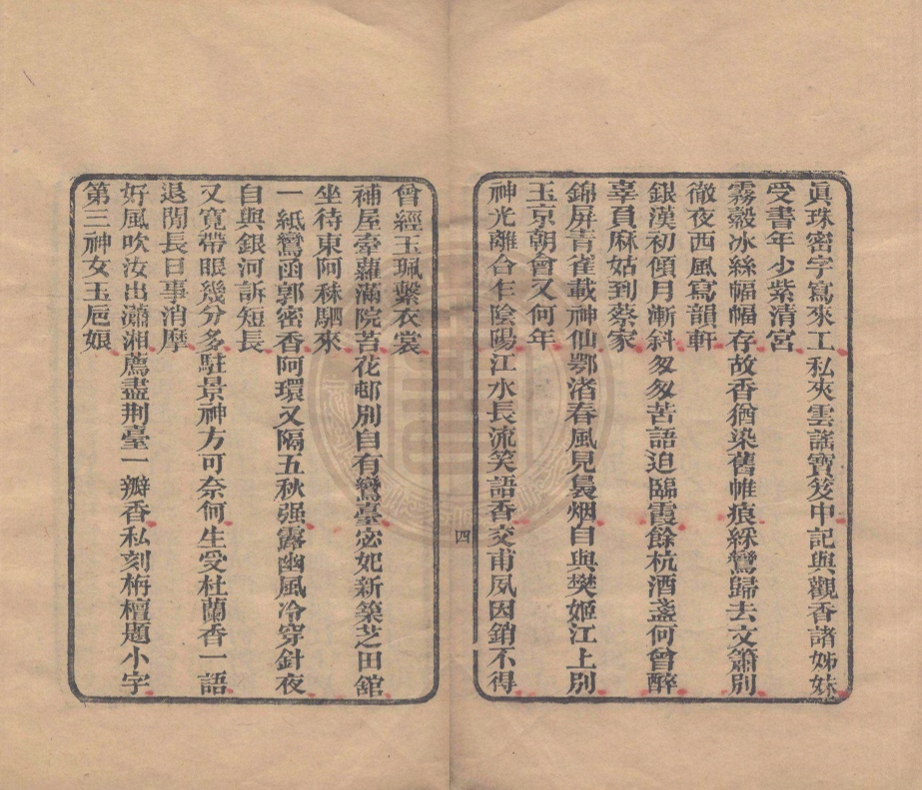 眞珠密字寫來工私夾雲謠寶笈中記與觀香諸姊妹
受書年少紫清宮
霧縠冰絲幅幅存故香猶染舊帷痕綵鸞歸去文簫別
徹夜西風寫韻軒
銀漢初傾月漸斜匆匆苦語迫臨霞餘杭酒盞何曾醉
辜負麻姑到蔡家
錦屏青雀載神仙鄂渚春風見裊烟自與樊姬江上別
玉京朝會又何年
神光離合乍陰陽江水長流笑語香交甫夙因銷不得
四
曾經玉珮繫衣裳
補屋牽蘿滿院苔花邨別自有鸞臺宓妃新築芝田館
坐待東阿秣駟來
一紙鸞函郭密香阿環又隔五秋强露幽風冷穿針夜
自與銀河訴短長
又寬帶眼幾分多駐景神方可奈何生受杜蘭香一語
退閒長日事消摩
好風吹汝出瀟湘薦盡荆臺一瓣香私刻栴檀題小字
第三神女玉巵娘